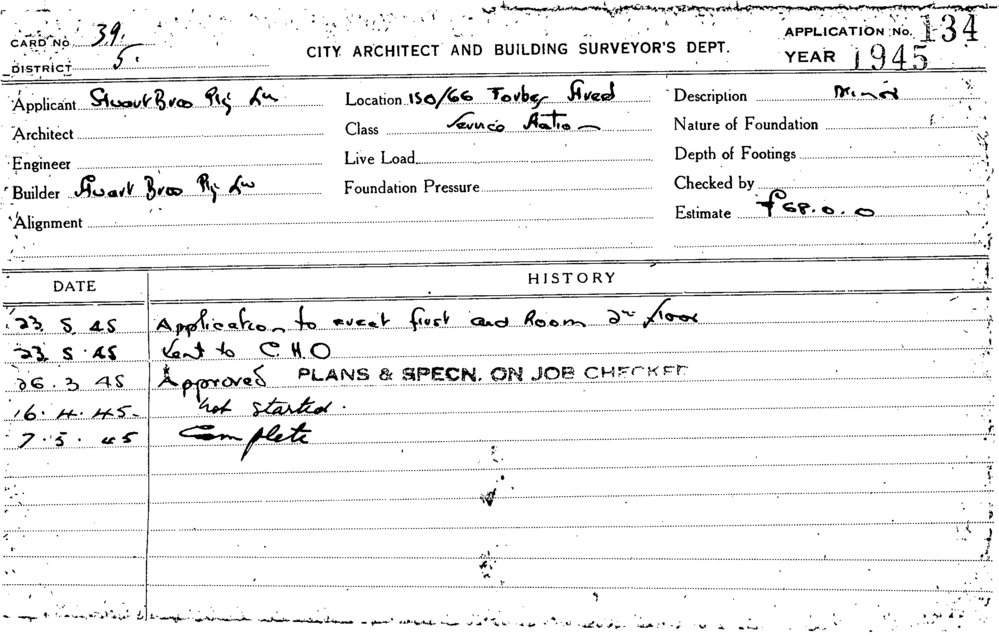 CARD No 39.
DISTRICT 5.
CITY ARCHITECT AND BUILDING SURVEYOR'S DEPT.
APPLICATION No. 134
YEAR 1945
Applicant Stuart Bros Pty Ltd
Location 150/66 Forbes Street
Description Minor
Architect
Class Service Station
Nature of Foundation
Engineer
Live Load
Depth of Footings
Builder Stuart Bros Pty Ltd
Foundation Pressure
Checked by
Alignment
Estimate £68.0.0
DATE HISTORY
23 45 Application to erect first aid Room floor
23 45 Sent to C.H.O
26.3 45 Approved PLANS & SPECN. ON JOB CHECKED
16.4.45 Not started.
7.5.45 Complete